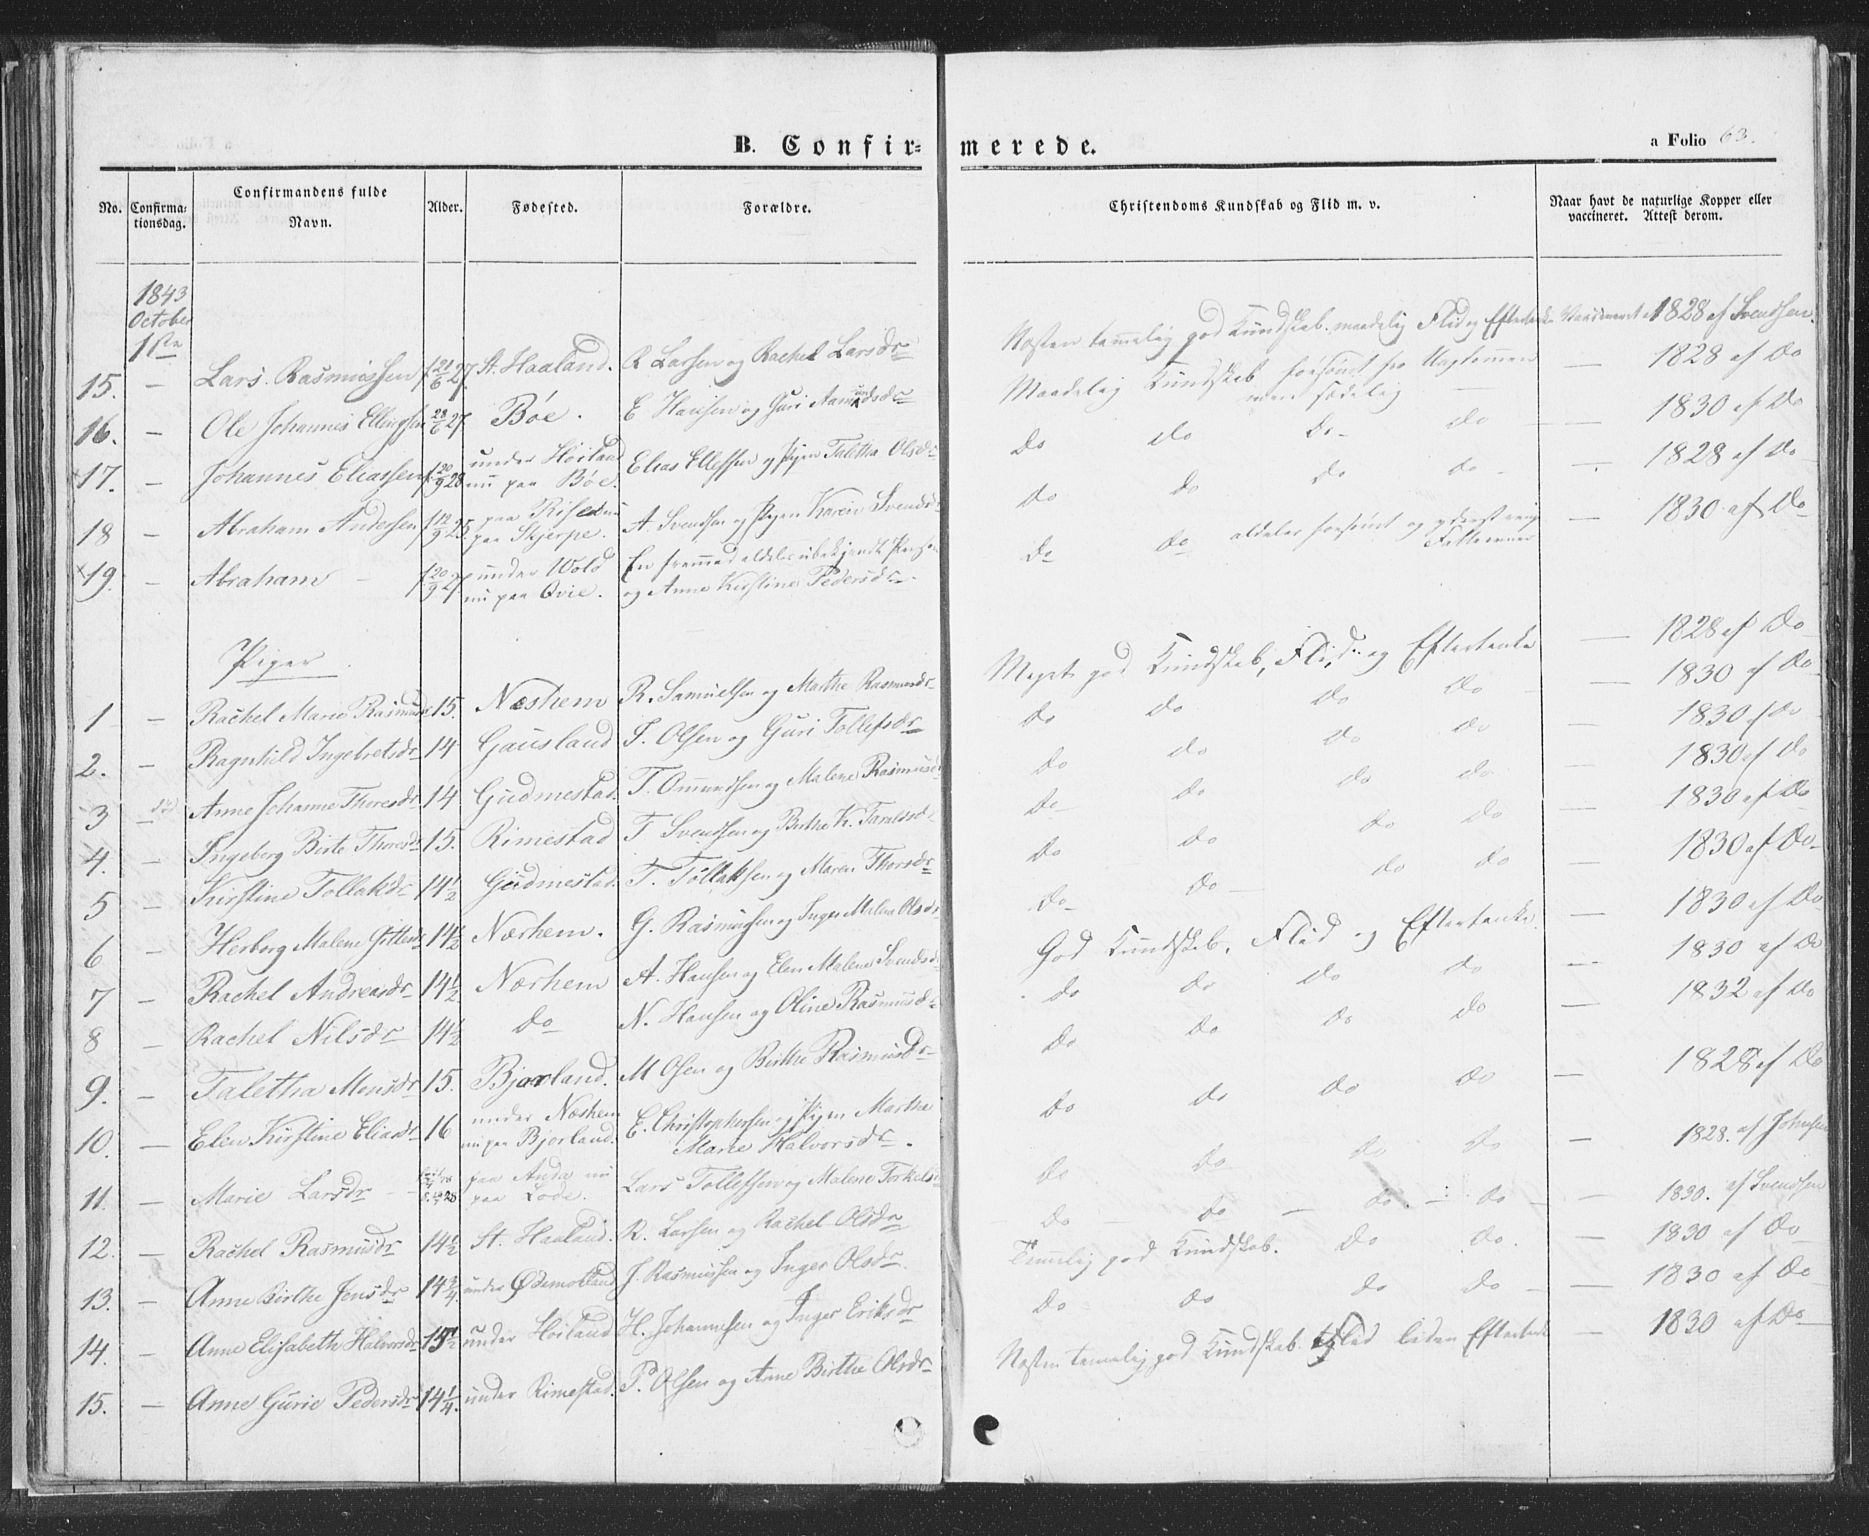 B. Confirmerede.
a Folio 63.
No. Confirmationsdag. Confirmandens fulde Navn. Alder. Fødested. Forældre. Christendoms Kundskab og Flid m. v. Naar havt de naturlige Kopper eller vaccineret. Attest derom.
1843
October
1ste
15. — Lars Rasmussen f 21/6 27 St. Haaland. R Larsen og Rachel Larsdr Næsten temmelig god Kundskab. maadelig Flid og Eftertanke 1828 af Svendsen.
16. — Ole Johannes Ellingsen 28/6 27 Bøe. E Hansen og Guri Aamundsdr Maadelig Kundskab 1828 af Do
17. — Johannes Eliassen f 20/9 28 under Høiland nu paa Bøe. Elias Ellefsen og Pigen Taletha Olsdr Do Do Do Do — 1830 af Do
18 — Abraham Andersen f 12/9 25 paa Rise nu paa Skjerpe. A Svendsen og Pigen Karen Svendsdr Do Do Do Do — 1828 af Do
19. — Abraham — f 20/9 27 under Wold nu paa Qvie. En fremmed aldeles ubekjendt Person og Anne Kirstine Pedersdr. Do Do aldeles forsømt og — 1830 af Do
Piger
1 — Rachel Marie Rasmusdr 15. Næshem R. Samuelsen og Marthe Rasmusdr Meget god Kundskab, Flid og Eftertanke — 1828 af Do
2. — Ragnhild Ingebretsdr 14 Gausland I. Olsen og Guri Tollefsdr Do Do Do Do — 1830 af Do
3 — Anne Johanne Thoresdr 14 Gudmestad. T. Ommundsen og Malene Rasmusdr Do Do Do Do — 1830 af Do
4. — Ingeborg Birte Thoresdr 15. Rimestad T Svendsen og Birthe K. Taraldsdr Do Do Do Do — 1830 af Do
5 — Kirstine Tollaksdr 14½ Gudmestad. T. Tollaksen og Maren Thorsdr Do Do Do Do — 1830 af Do
6 — Herborg Malene 14½ Nærhem. G. Rasmussen og Inger Malene Olsdr Do Do Do Do — 1830 af Do
7 — Rachel Andreasdr 14½ Nærhem A. Hansen og Elen Malene Svendsdr God Kundskab, Flid og Eftertanke. — 1830 af Do
8 — Rachel Nilsdr 14½ Do N. Hansen og Oline Rasmusdr Do Do Do Do — 1830 af Do
9. — Taletha Monsdr 15. Bjorland. M Olsen og Birthe Rasmusdr Do Do Do Do — 1832 af Do
10. — Elen Kirstine Eliasdr 16 under Næshem nu paa Bjorland. E. Christophersen og Pigen Martha Marie Halvorsdr. Do Do Do Do — 1828 af Do
11. — Marie Larsdr paa Anda nu paa Lode. Lars Tollefsen og Malene Torkelsdr Do Do Do Do — 1828. af Johnsen
12. — Rachel Rasmusdr 14½ St. Haaland. R. Larsen og Rachel Olsdr Do — Do — Do — Do — 1830. af Svendsen
13. — Anne Birthe Jensdr 14¾ under Ødemotland J. Rasmussen og Inger Olsdr. Temmelig god Kundskab. Do Do. — 1830 af Do
14. — Anne Elisabeth Halvorsdr 15½ under Høiland H. Johannesen og Inger Eriksdr Do Do Do Do — 1830 af Do
15. — Anne Gurie Pedersdr 14¼ under Rimestad. P. Olsen og Anne Birthe Olsdr Næsten temmelig god Kundskab. Flid liden Eftertanke — 1830 af Do